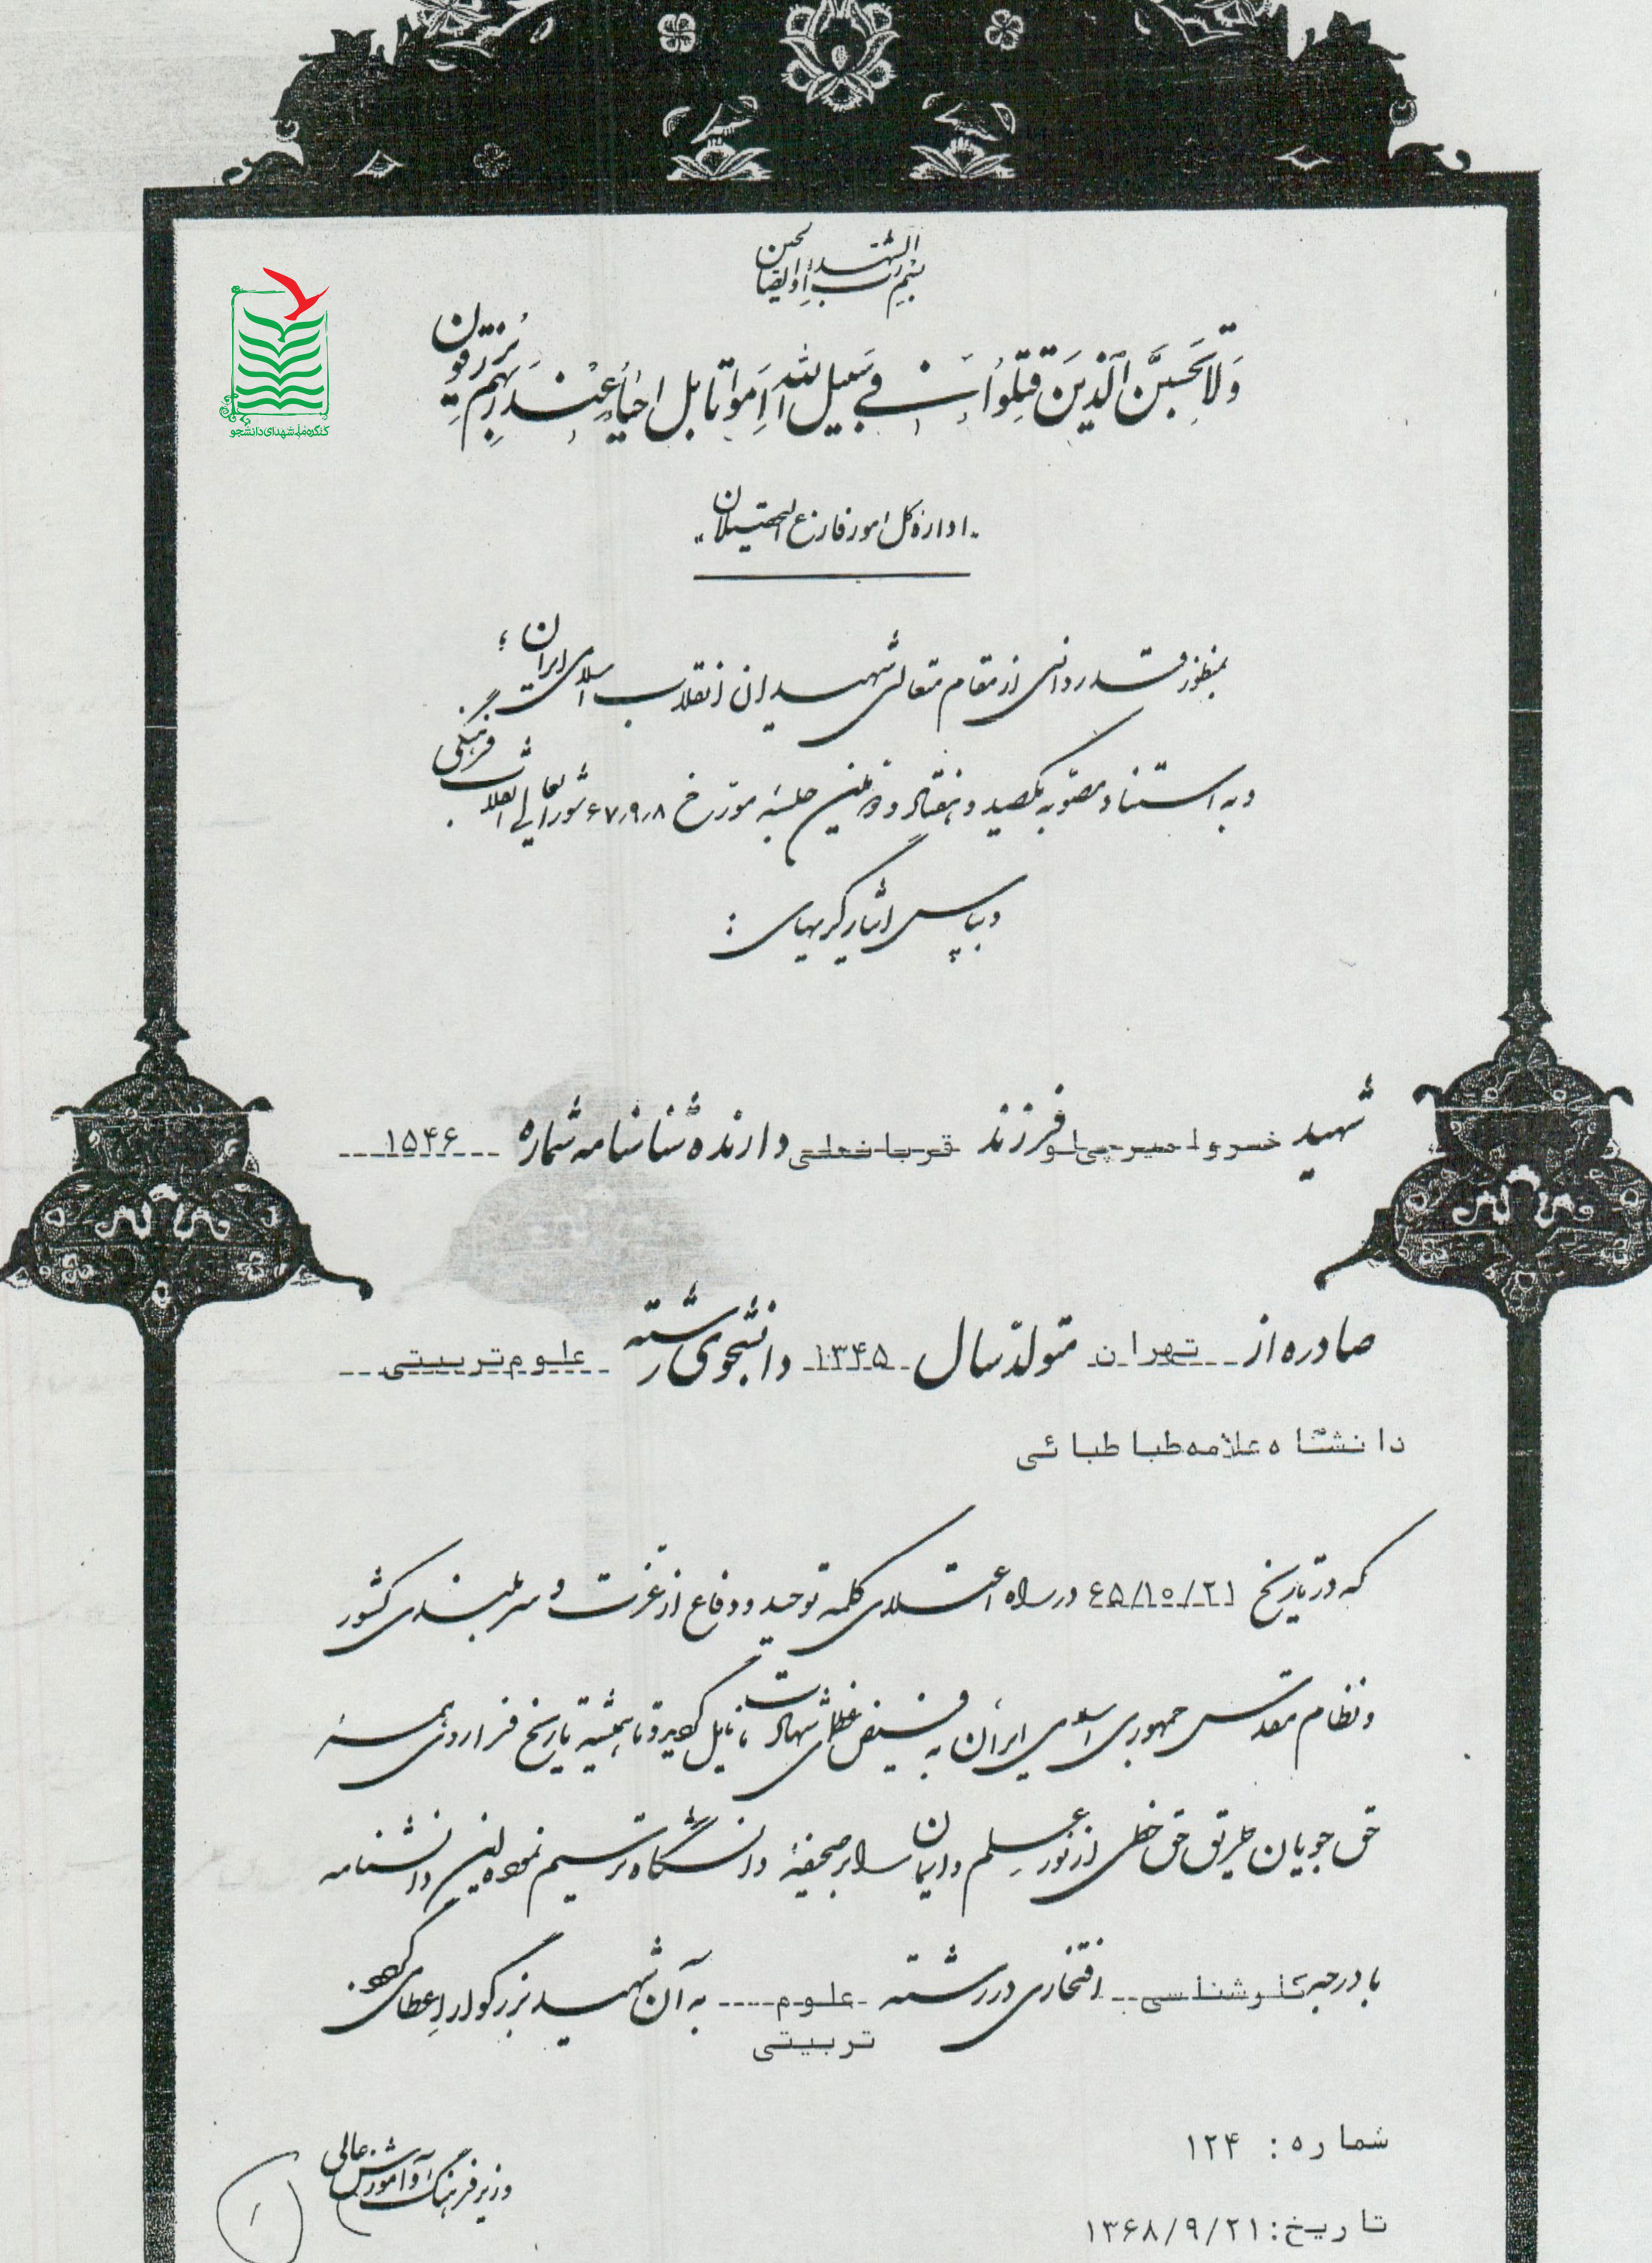 بسم رب الشهداء والصالحین
وَلا تَحسَبَنَّ الَّذینَ قُتِلوُا فی سَبیلِ اللهِ اَمواتا بَل اَحیاءٌ عِندَ رَبِّهِم یُرزَقون
کنگره ملی شهدای دانشجو
اداره کل امور فارغ التحصیلان
بمنظور قدردانی از مقام متعالی شهیدان انقلاب اسلامی ایران ؛
و به استناد مصوبه یکصد و هفتاد و دومین جلسه مورخ ۶۷٫۹٫۸ شورایعالی انقلاب فرهنگی
و بپاس ایثارگریهای :
شهید خسرو امیرچپلو فرزند قربانعلی دارنده شناسنامه شماره ۱۵۴۶
صادره از تهران متولد سال ۱۳۴۵ دانشجوی رشته علوم تربیتی
دانشگاه علامه طباطبائی
که در تاریخ ۶۵/۱۰/۲۱ در راه اعتلای کلمه توحید و دفاع از عزت و سربلندی کشور
و نظام مقدس جمهوری اسلامی ایران به فیض عظمای شهادت نایل گردید و تا همیشه تاریخ فراروی همه
حق جویان طریق حق خطی از نور علم و ایمان را بر صحیفه دانشگاه ترسیم نموده این دانشنامه
با درجه کارشناسی افتخاری در رشته علوم تربیتی به آن شهید بزرگوار اعطا می گردد.
شماره : ۱۲۴
تاریخ: ۱۳۶۸/۹/۲۱
وزیر فرهنگ و آموزش عالی